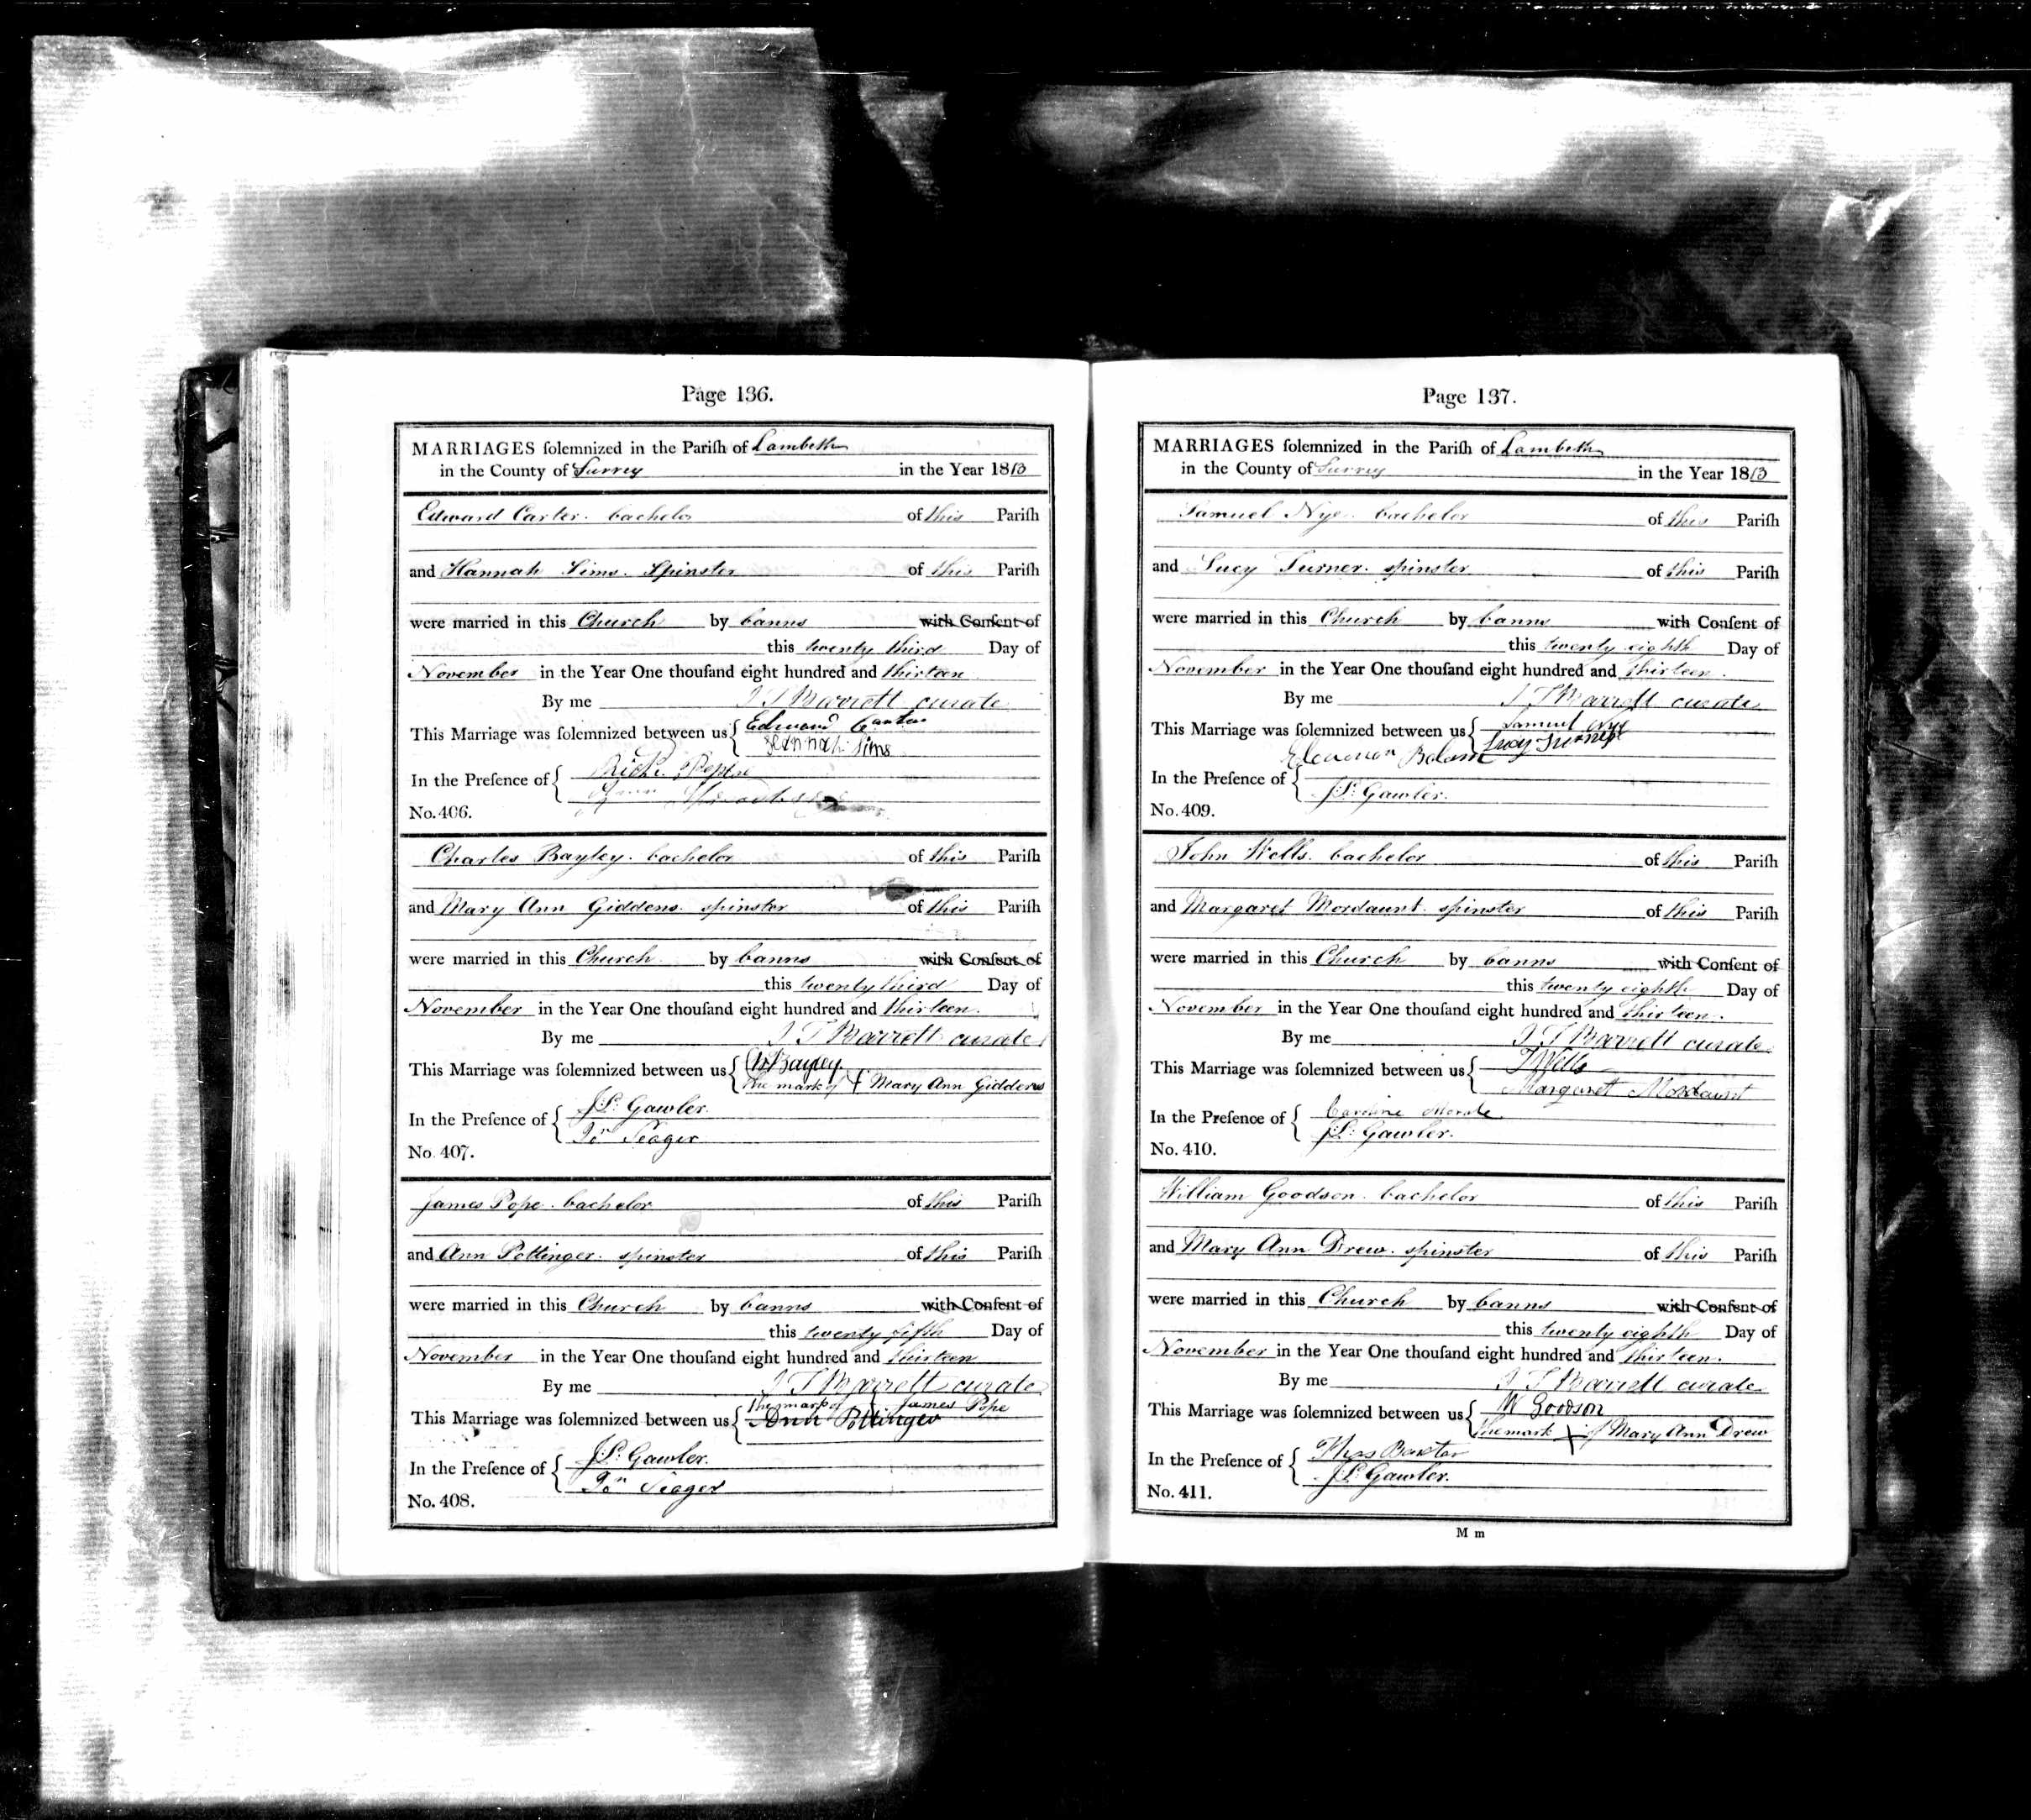 Page 136.
MARRIAGES ſolemnized in the Pariſh of Lambeth
in the County of Surrey in the Year 1813
Edward Carter. bachelor of this Pariſh
and Hannah Sims. Spinster of this Pariſh
were married in this Church by banns with Conſent of
this twenty third Day of
November in the Year One thouſand eight hundred and thirteen
By me J T Barrett curate
This Marriage was ſolemnized between us { Edward Carter
Hannah Sims
In the Preſence of {
No. 406.
Charles Bayley. bachelor of this Pariſh
and Mary Ann Giddens. spinster of this Pariſh
were married in this Church by banns with Conſent of
this twenty third Day of
November in the Year One thouſand eight hundred and thirteen.
By me J T Barrett curate
This Marriage was ſolemnized between us { Bayley.
the mark of + Mary Ann Giddens
In the Preſence of { J.S: Gawler.
Jon Seager
No. 407.
James Pope. bachelor of this Pariſh
and Ann Pottinger. spinster of this Pariſh
were married in this Church by banns with Conſent of
this twenty fifth Day of
November in the Year One thouſand eight hundred and thirteen
By me J T Barrett curate
the mark of + James Pope
This Marriage was ſolemnized between us { Ann Pottinger
In the Preſence of { J.S: Gawler.
Jon Seager
No. 408.
Page 137.
MARRIAGES ſolemnized in the Pariſh of Lambeth
in the County of Surrey in the Year 1813
Samuel Nye. bachelor of this Pariſh
and Lucy Turner. spinster of this Pariſh
were married in this Church by banns with Conſent of
this twenty eighth Day of
November in the Year One thouſand eight hundred and thirteen.
By me J T Barrett curate
This Marriage was ſolemnized between us { Samuel Nye
Lucy Turner
Eleanor Balam
In the Preſence of { J.S: Gawler.
No. 409.
John Wells. bachelor of this Pariſh
and Margaret Mordaunt. spinster of this Pariſh
were married in this Church by banns with Conſent of
this twenty eighth Day of
November in the Year One thouſand eight hundred and thirteen.
By me J T Barrett curate
This Marriage was ſolemnized between us { J Wells
Margarett Mordaunt
In the Preſence of { Caroline
J.S: Gawler.
No. 410.
William Goodson. bachelor of this Pariſh
and Mary Ann Drew. spinster of this Pariſh
were married in this Church by banns with Conſent of
this twenty eighth Day of
November in the Year One thouſand eight hundred and thirteen.
By me J T Barrett curate
This Marriage was ſolemnized between us { W Goodson
the mark + of Mary Ann Drew
In the Preſence of { Thos Baxter
J.S: Gawler.
No. 411.
M m